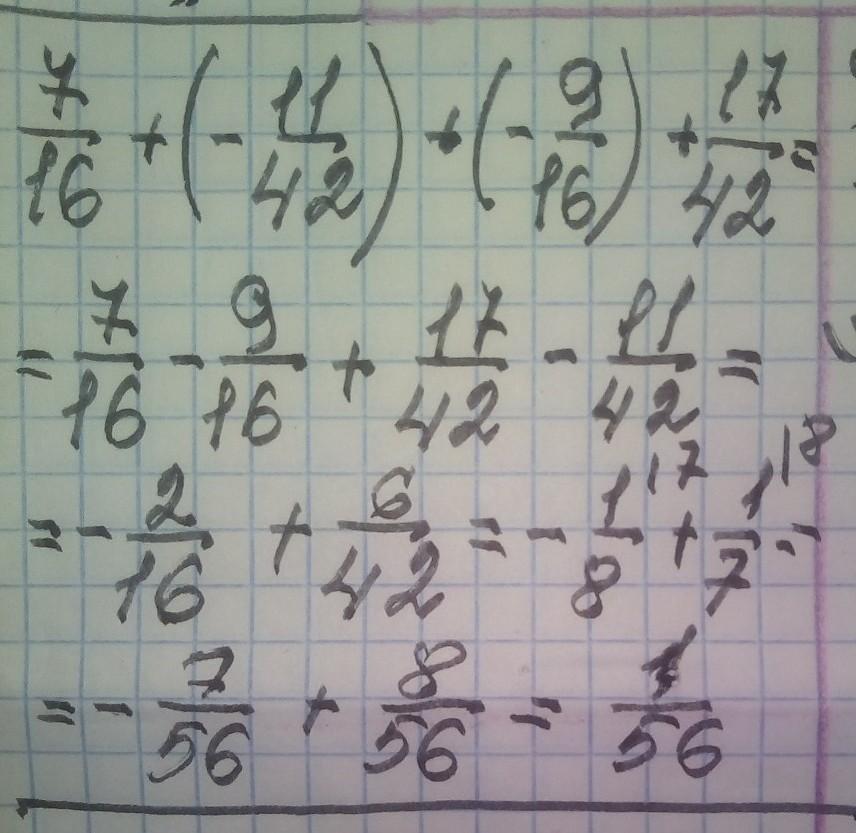 7/16 + (- 11/42) + (- 9/16) + 17/42 =
= 7/16 - 9/16 + 17/42 - 11/42 =
= - 2/16 + 6/42 = - 1/8 |7 + 1/7 |8 =
= - 7/56 + 8/56 = 1/56